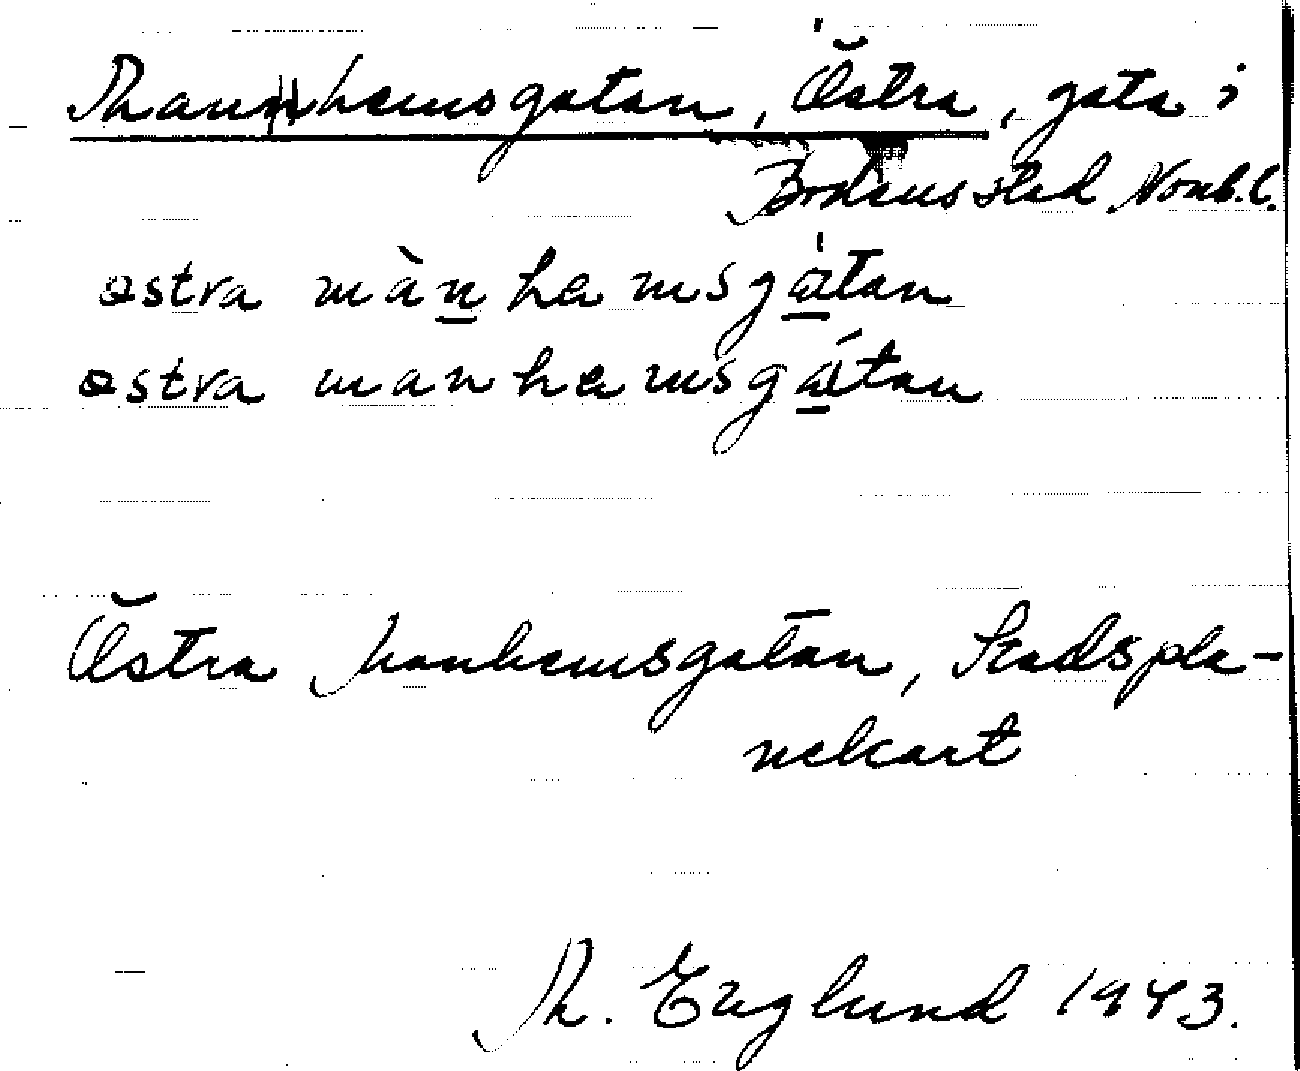 Manhemsgatan, Östra, gata i
Bodens stad Nonb.l.
østra màn he msgåtan
østra man he msgåtan
Östra Manhemsgatan, Stadspla-
nekart
M. Englund 1943.